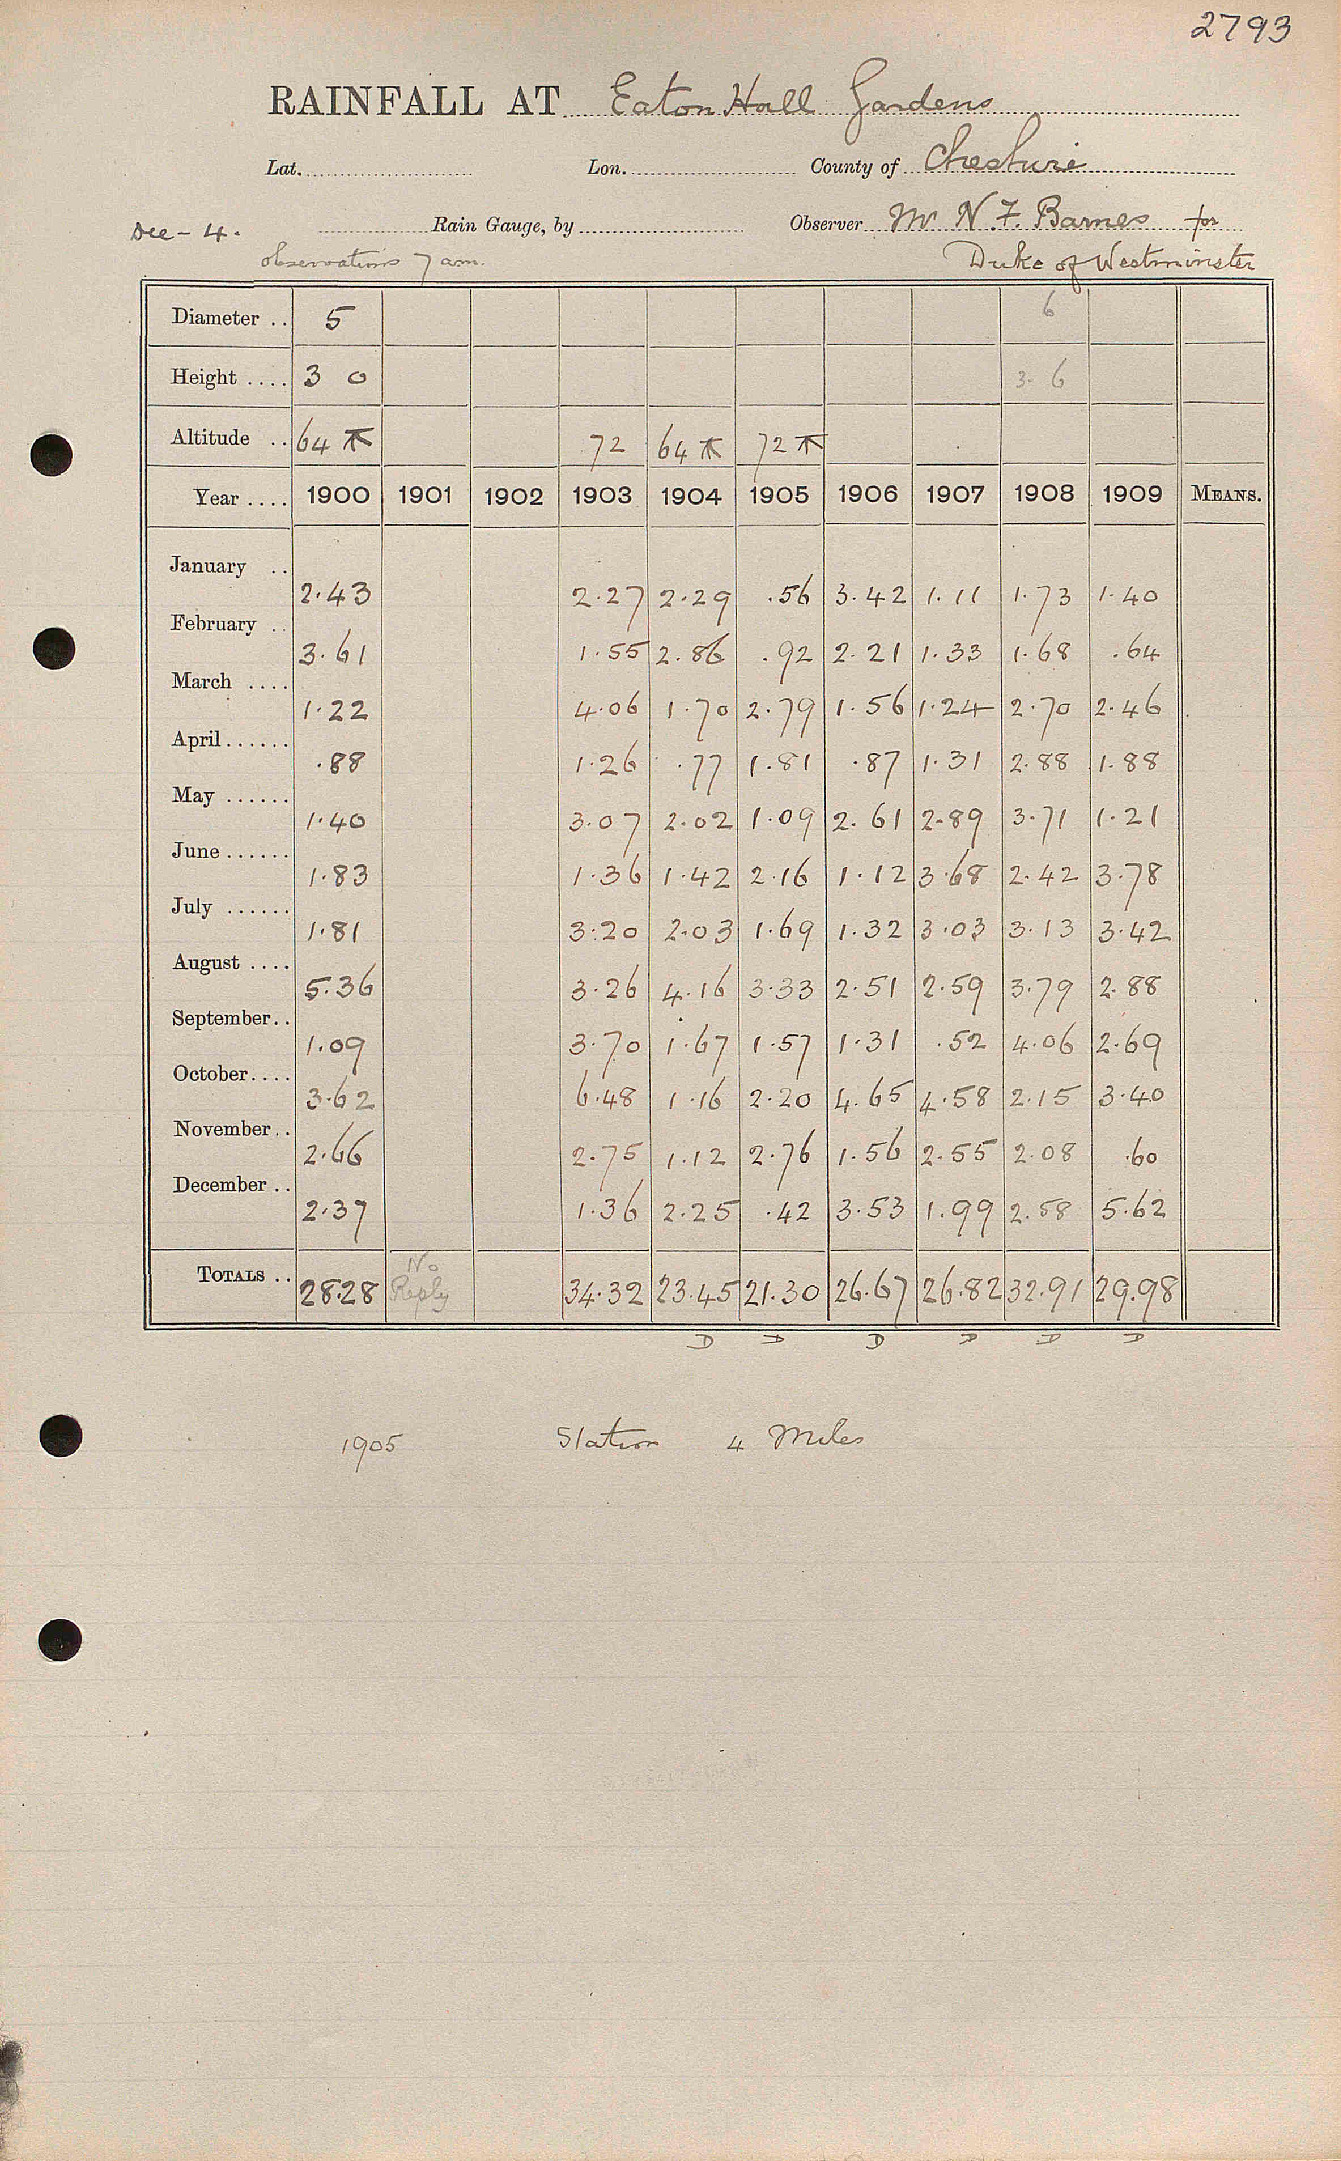 2793
RAINFALL AT Eaton Hall Gardens
Lat. Lon. County of Cheshire
Dee - 4. Rain Gauge, by Observer Mr N. F. Barnes for
observations 7 am. Duke of Westminster
Diameter .. 5 6
Height .... 3 0 3. 6
Altitude .. 64 72 64 72
Year .... 1900 1901 1902 1903 1904 1905 1906 1907 1908 1909 MEANS.
January .. 2.43 2.27 2.29 .56 3.42 1.11 1.73 1.40
February .. 3.61 1.55 2.86 .92 2.21 1.33 1.68 .64
March .... 1.22 4.06 1.70 2.79 1.56 1.24 2.70 2.46
April ...... .88 1.26 .77 1.81 .87 1.31 2.88 1.88
May ...... 1.40 3.07 2.02 1.09 2.61 2.89 3.71 1.21
June ...... 1.83 1.36 1.42 2.16 1.12 3.68 2.42 3.78
July ...... 1.81 3.20 2.03 1.69 1.32 3.03 3.13 3.42
August .... 5.36 3.26 4.16 3.33 2.51 2.59 3.79 2.88
September.. 1.09 3.70 1.67 1.57 1.31 .52 4.06 2.69
October.... 3.62 6.48 1.16 2.20 4.65 4.58 2.15 3.40
November.. 2.66 2.75 1.12 2.76 1.56 2.55 2.08 .60
December .. 2.37 1.36 2.25 .42 3.53 1.99 2.58 5.62
TOTALS .. 28.28 No Reply 34.32 23.45 21.30 26.67 26.82 32.91 29.98
D D D D D D
1905 Station 4 Miles